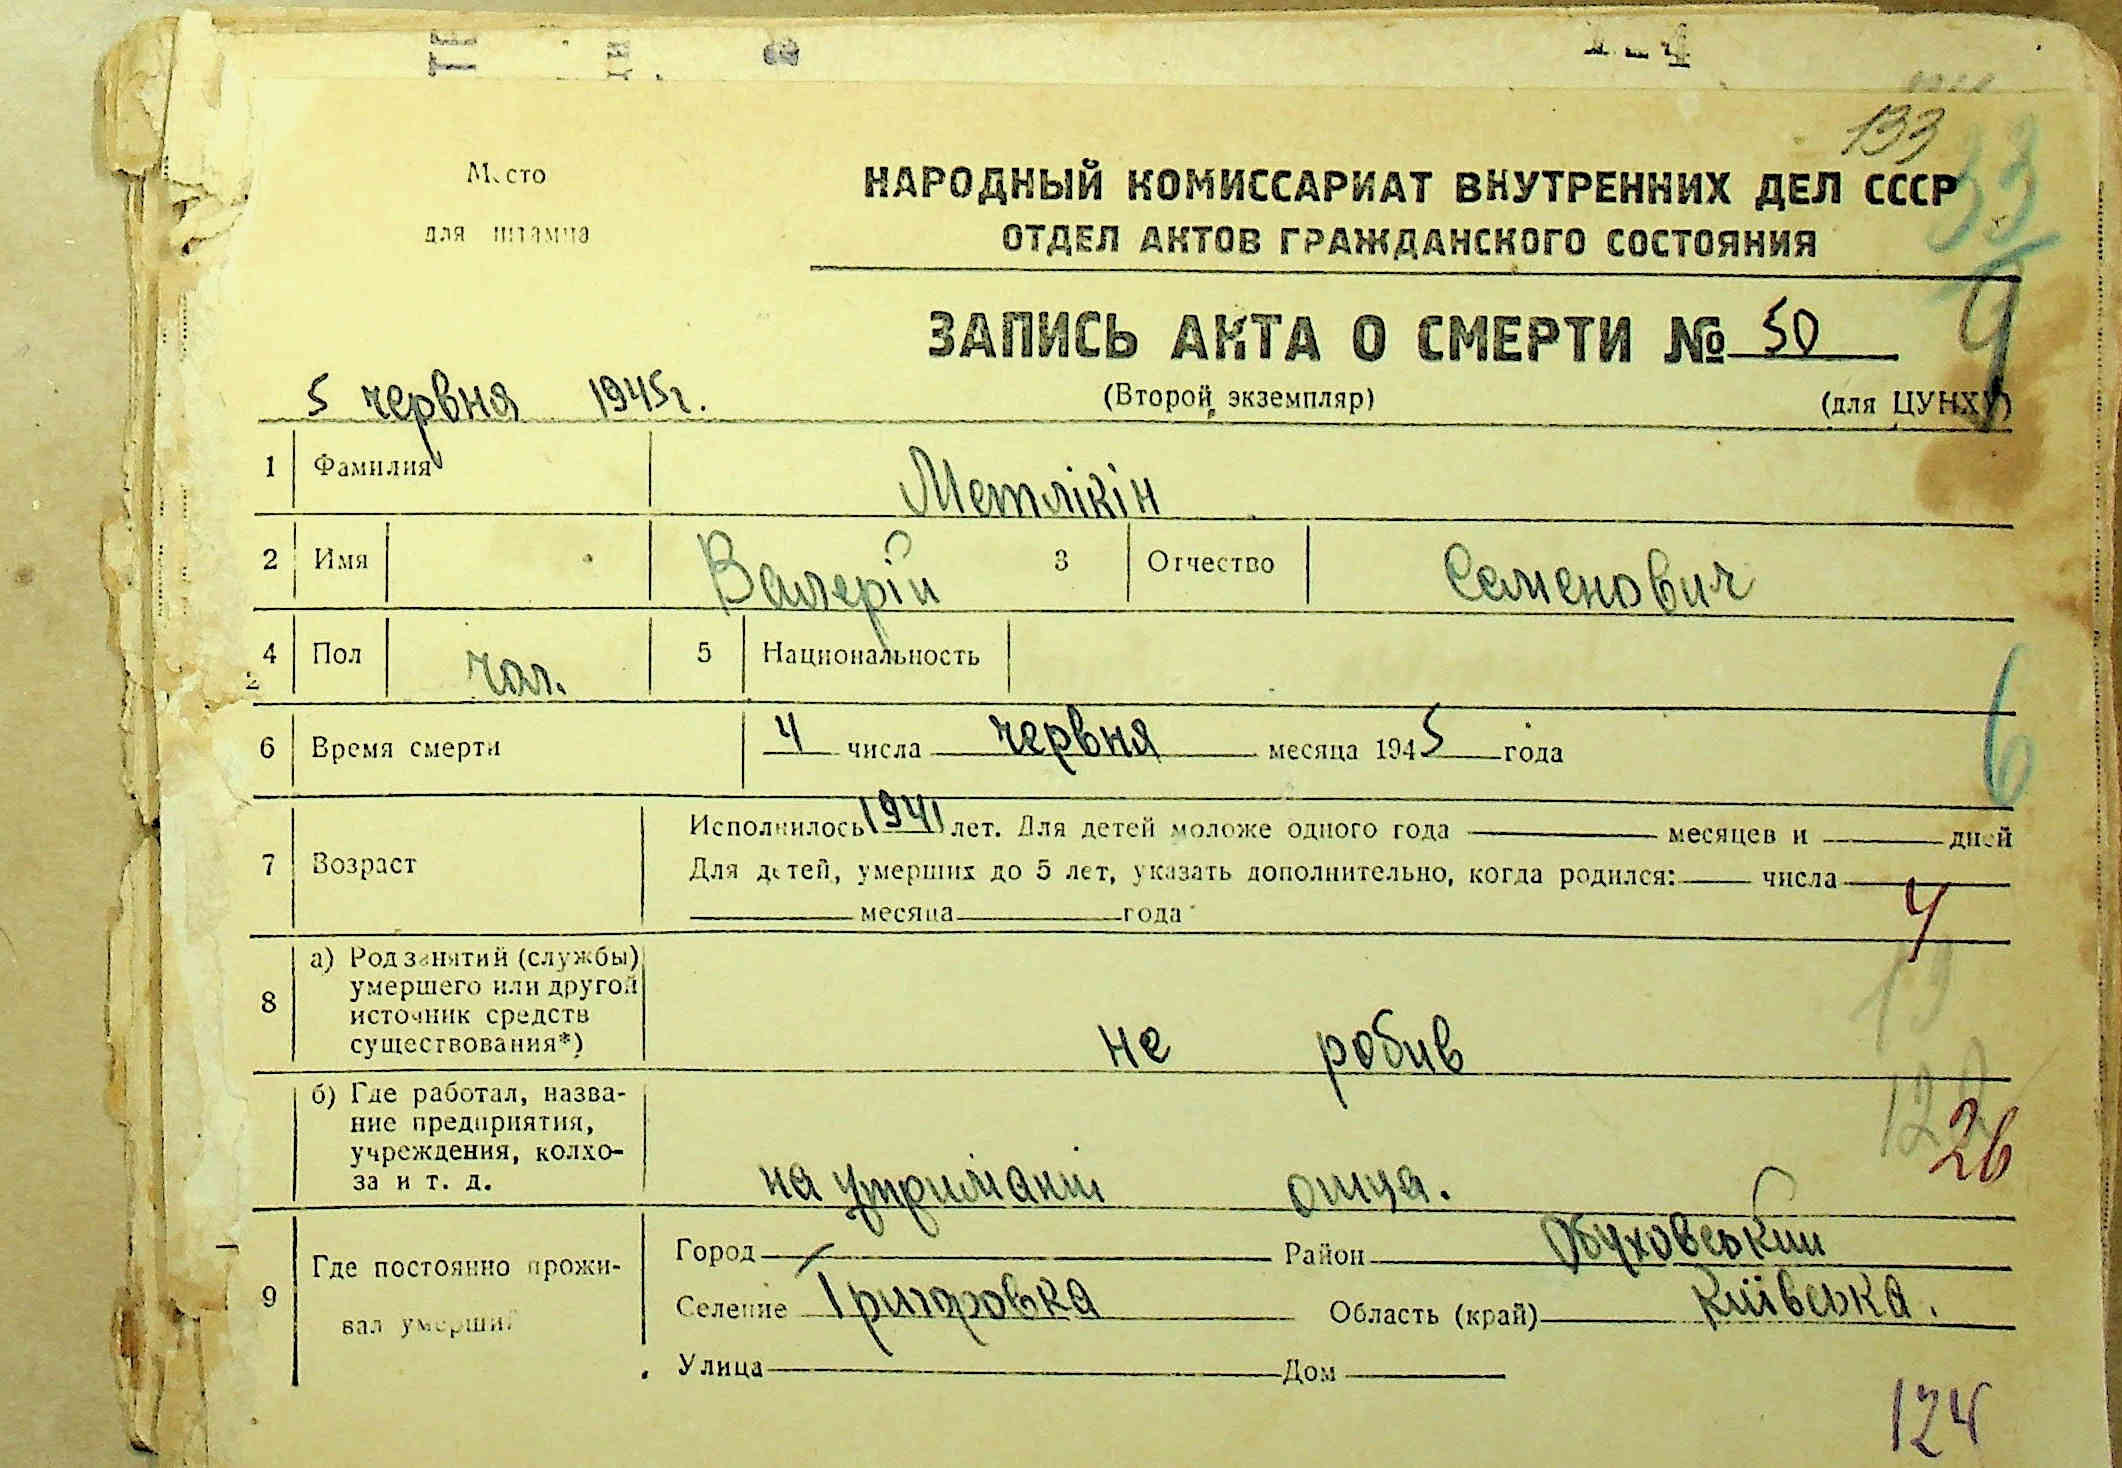 133
33
9
Место
для штампа
НАРОДНЫЙ КОМИССАРИАТ ВНУТРЕННИХ ДЕЛ СССР
ОТДЕЛ АКТОВ ГРАЖДАНСКОГО СОСТОЯНИЯ
ЗАПИСЬ АКТА О СМЕРТИ № 50
5 червня 1945 г.
(Второй экземпляр) (для ЦУНХУ)
1 Фамилия Метлікін
2 Имя Валерій 3 Отчество Семенович
4 Пол чол. 5 Национальность
6 Время смерти 4 числа червня месяца 1945 года
6
7 Возраст
Исполнилось 1941 лет. Для детей моложе одного года месяцев и дней
Для детей, умерших до 5 лет, указать дополнительно, когда родился: числа
месяца года
4
8 а) Род занятий (службы)
умершего или другой
источник средств
существования*)
не робив
19
б) Где работал, назва-
ние предприятия,
учреждения, колхо-
за и т. д.
на утриманні отця.
122
26
9 Где постоянно прожи-
вал умерший
Город Район Обуховський
Селение Григоровка Область (край) Київська.
Улица Дом
124